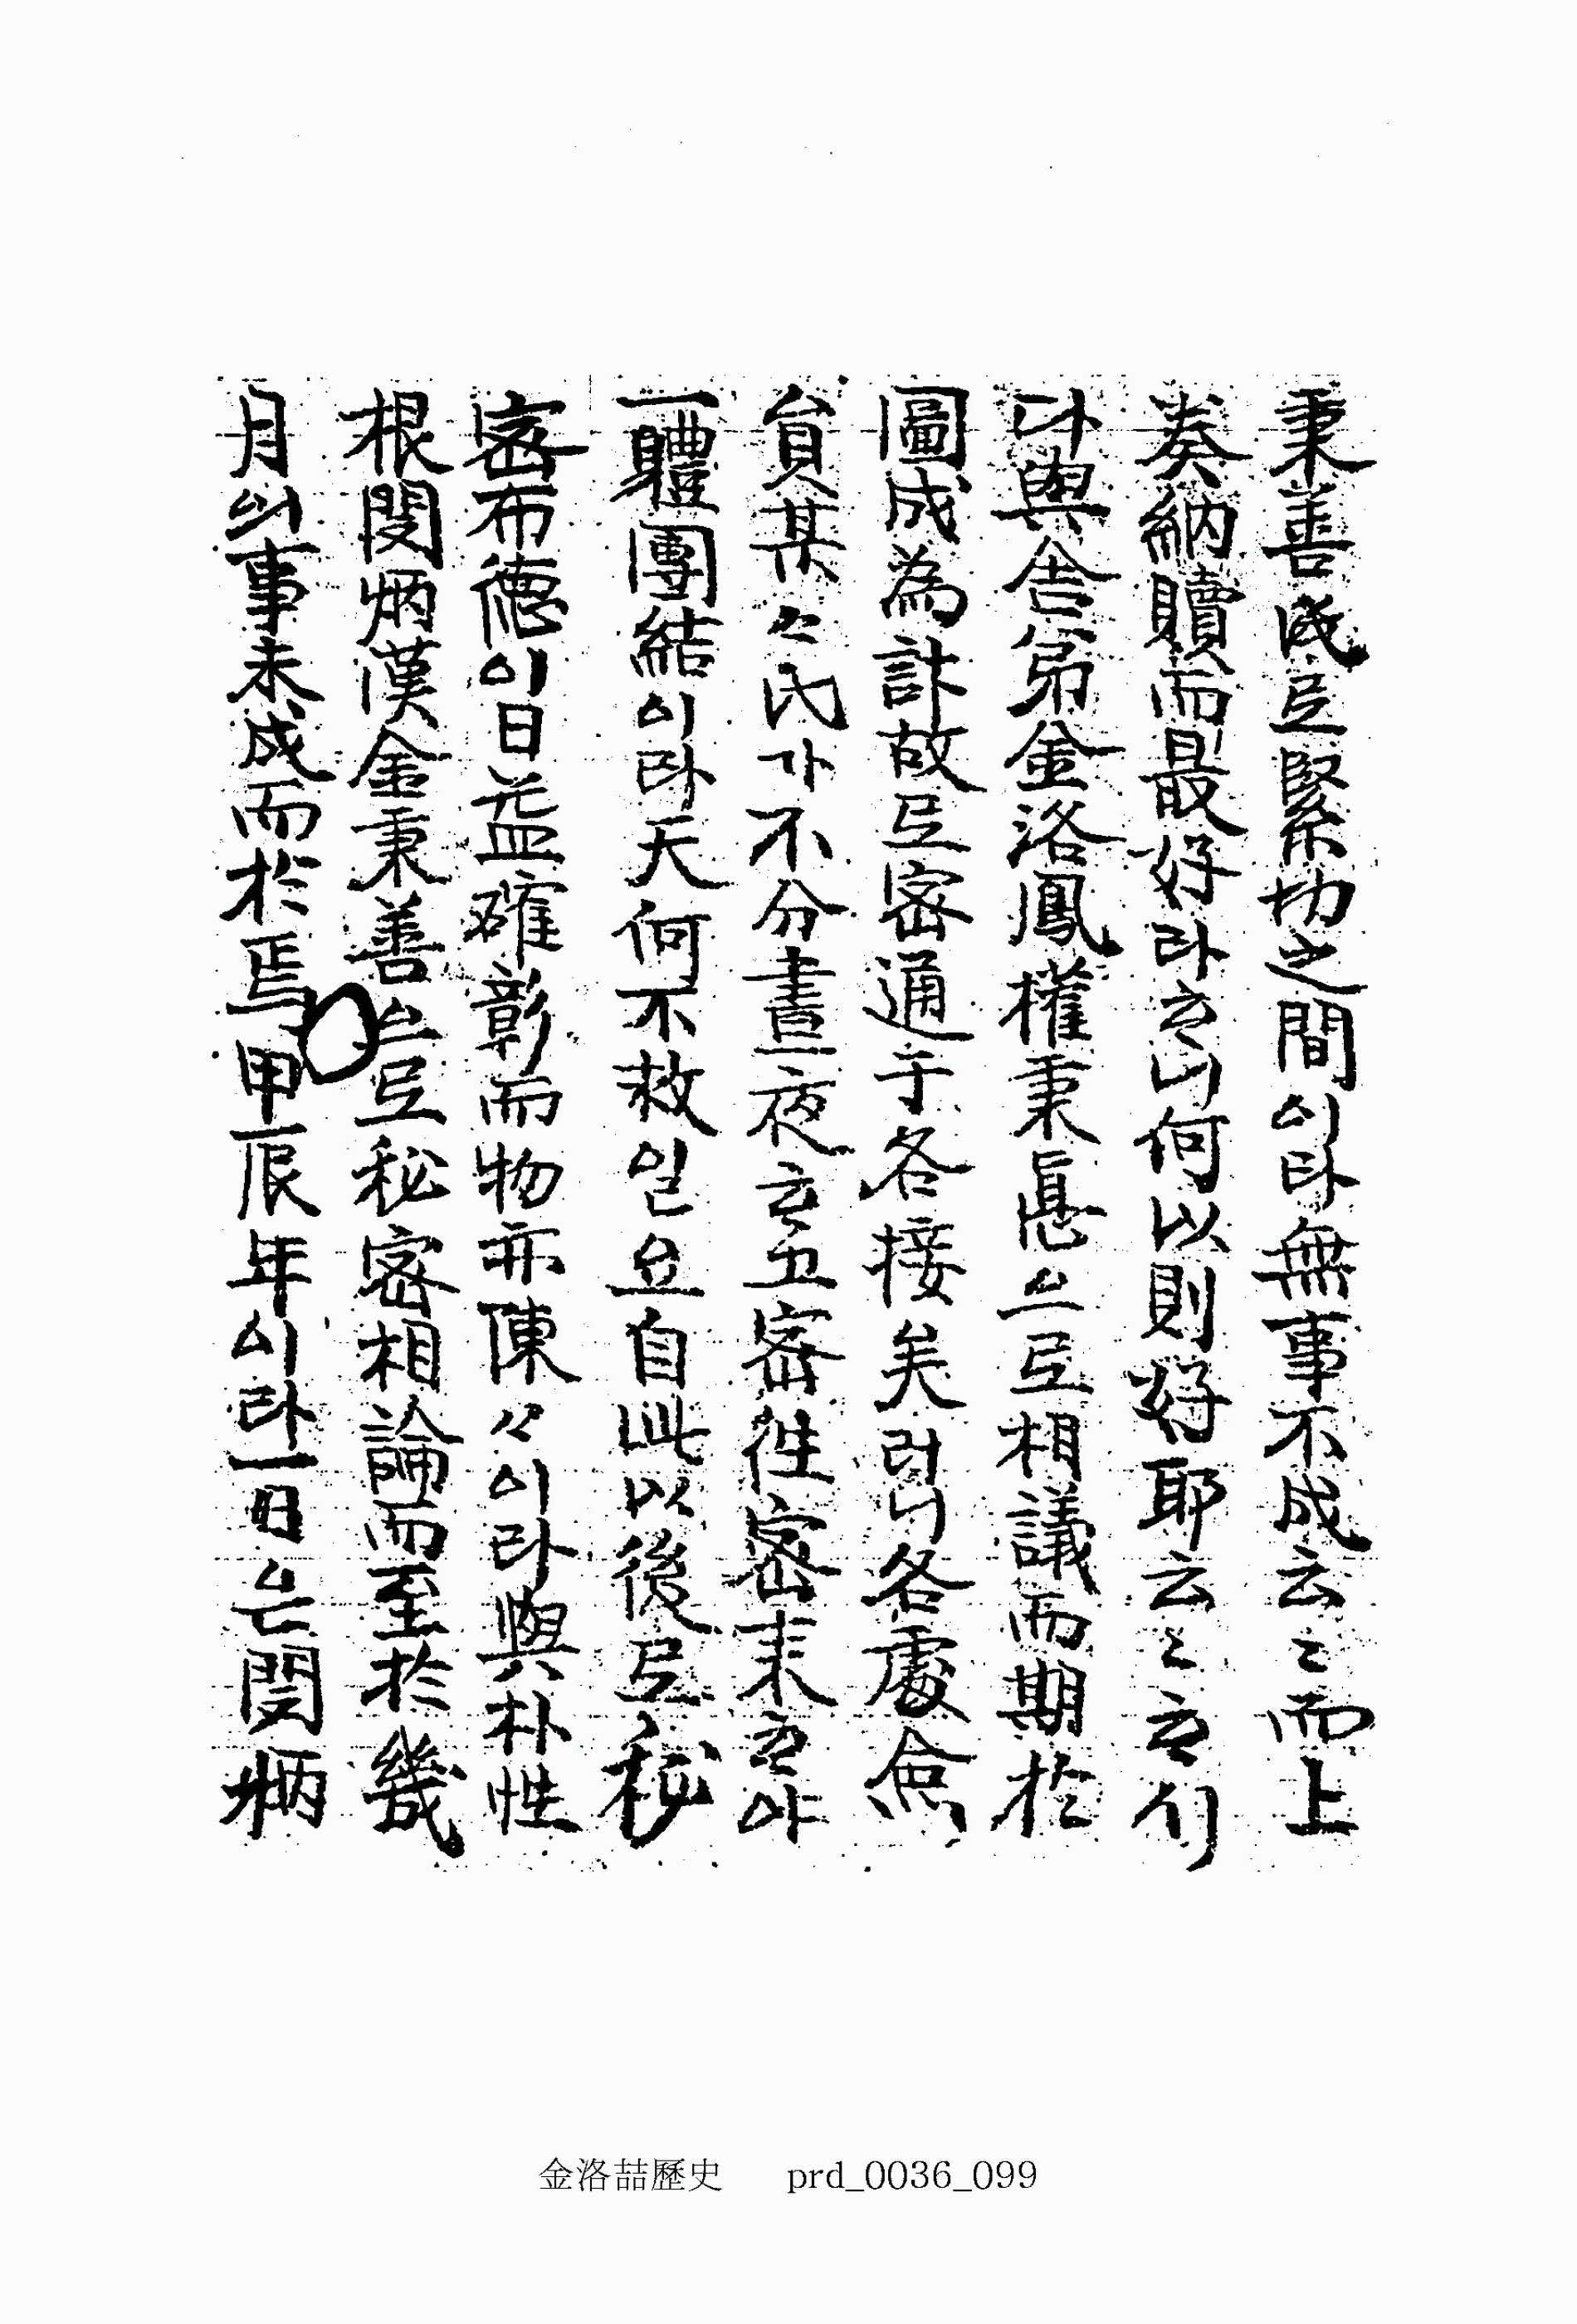 秉善氏로緊切之間이라無事不成云〻而上
奏納贖而最好라하니何以則好耶云〻하시
다與舍弟金洛鳳權秉悳으로相議而期於
圖成為計故로密通于各接矣러니各處僉
員某〻氏가不分晝夜하고密往密来하야
一軆團結이라天何不救일요自此以後로秘
密布德이日益確彰而物亦陳〻이라與朴性
根閔炳漢金秉善으로秘密相論而至於幾
月以事未成而於焉甲辰年이라一日은閔炳
金洛喆歷史 prd_0036_099